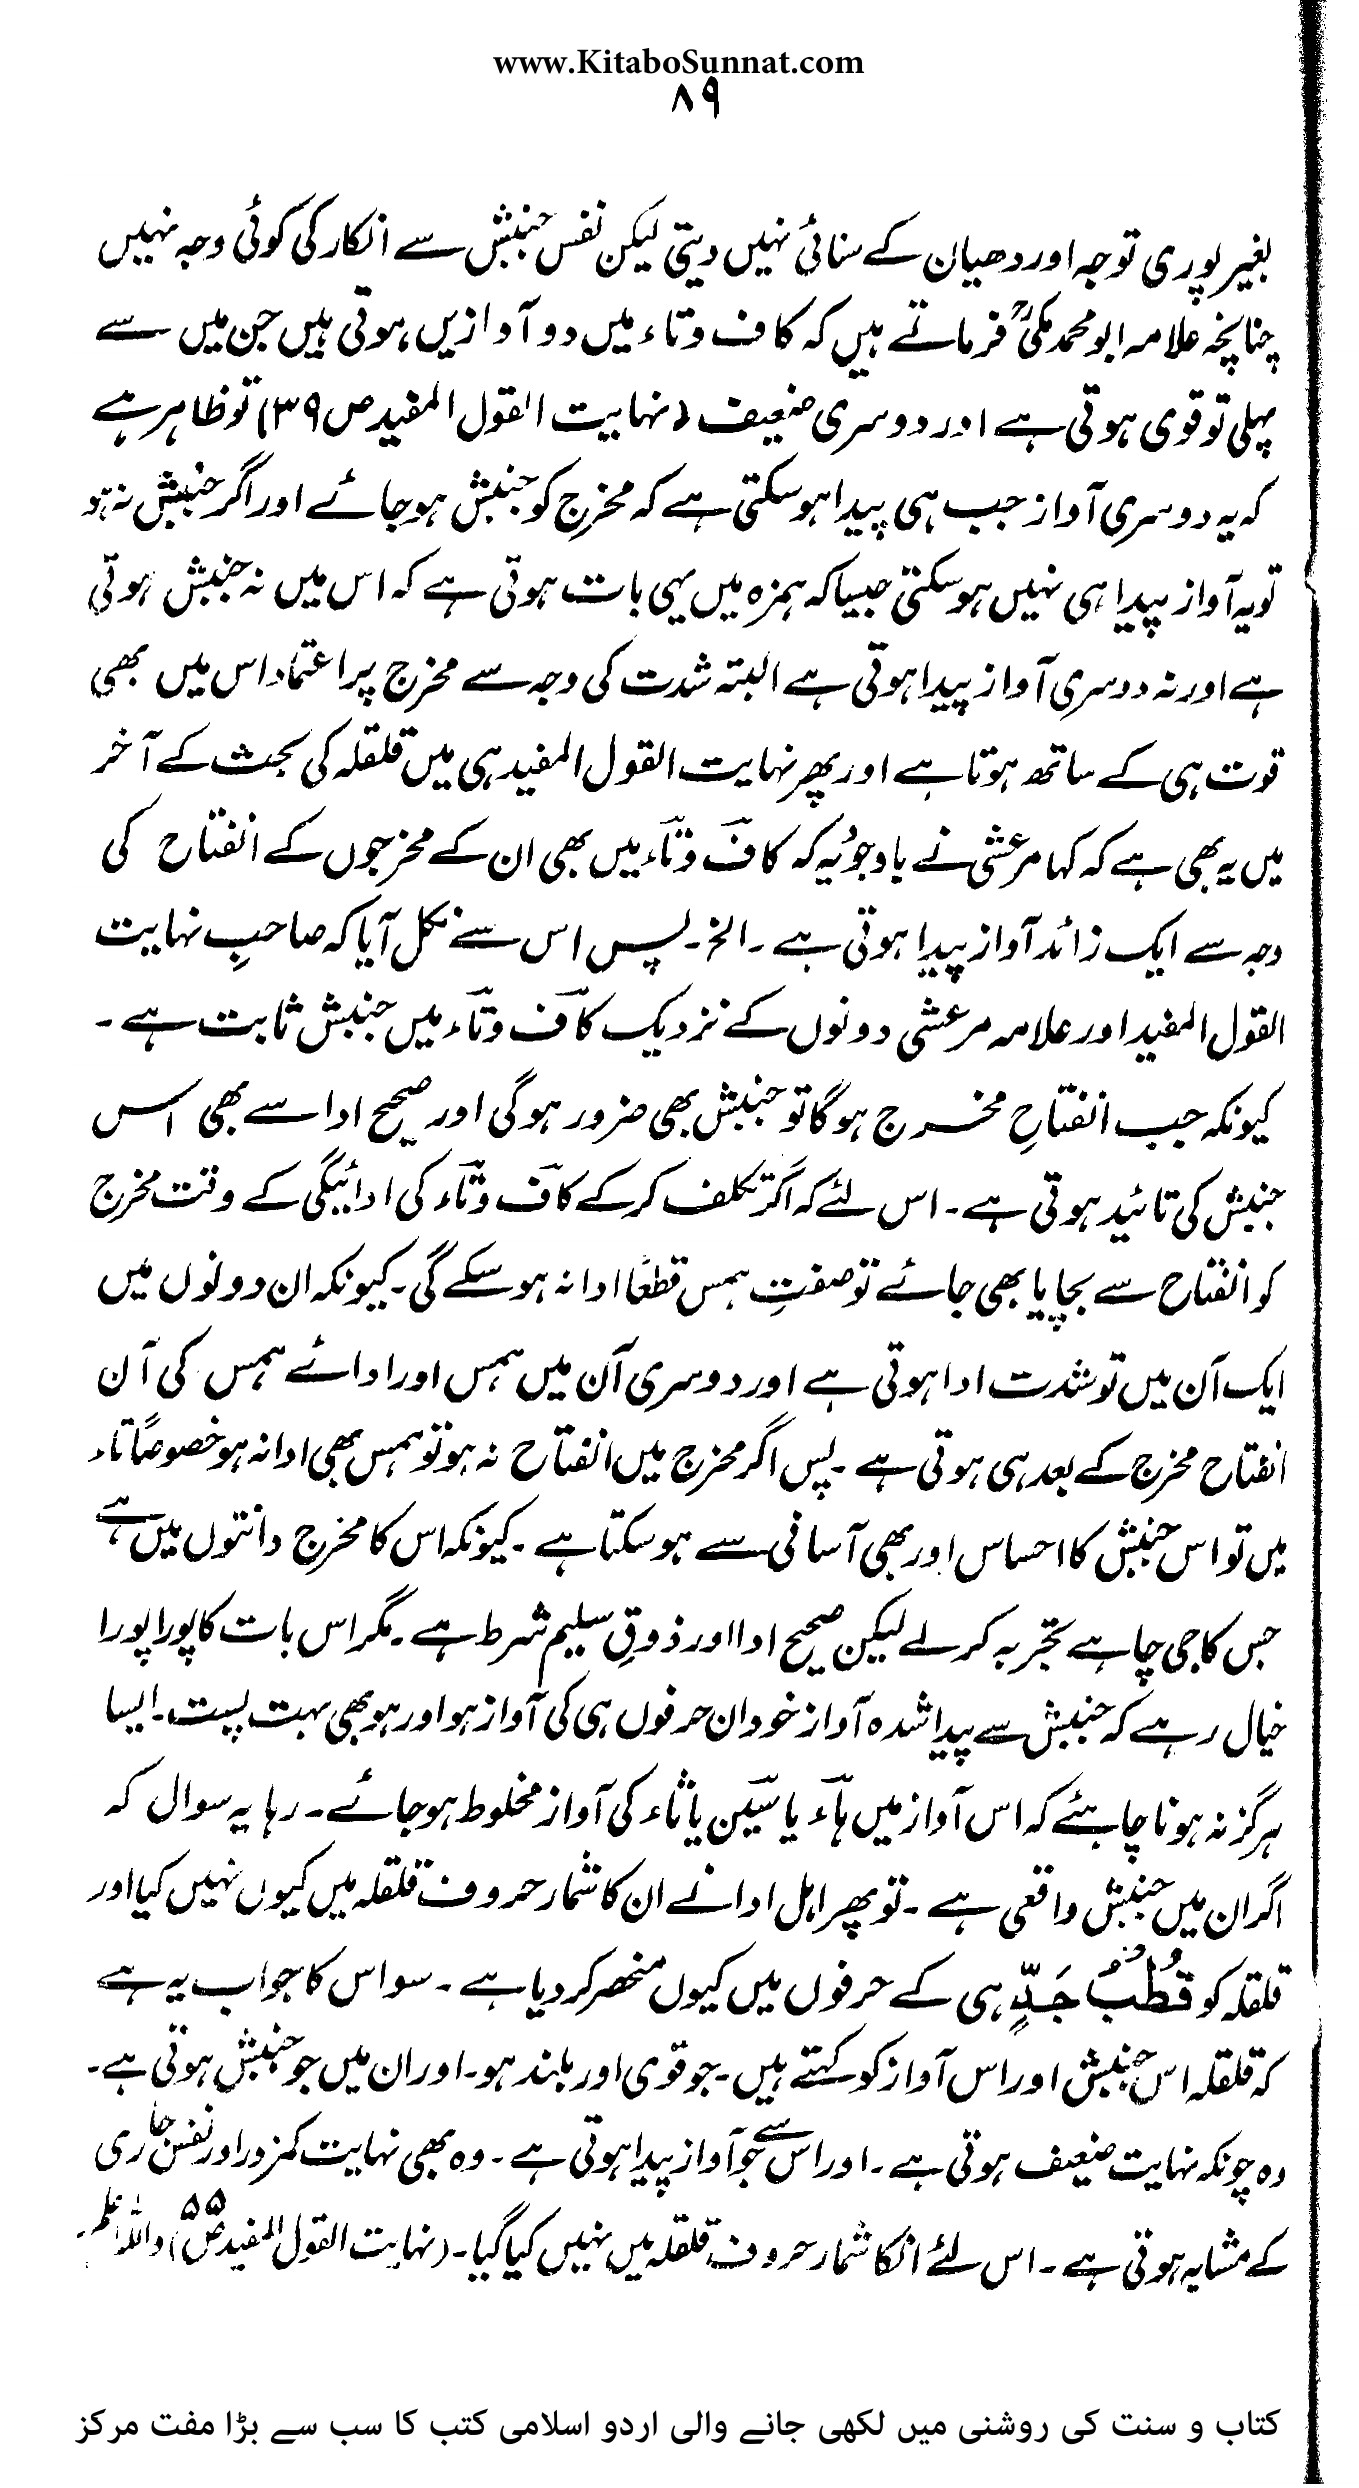 www.KitaboSunnat.com
۸۹
بغیر پوری توجہ اور دھیان کے سنائی نہیں دیتی لیکن نفس جنبش سے انکار کی کوئی وجہ نہیں
چنانچہ علامہ ابو محمد مکیؒ فرماتے ہیں کہ کاف وتاء میں دو آوازیں ہوتی ہیں جن میں سے
پہلی تو قوی ہوتی ہے اور دوسری ضعیف (نہایت القول المفید ص ۳۹) تو ظاہر ہے
کہ یہ دوسری آواز جب ہی پیدا ہو سکتی ہے کہ مخرج کو جنبش ہو جائے اور اگر جنبش نہ ہو
تو یہ آواز پیدا ہی نہیں ہو سکتی جیسا کہ ہمزہ میں یہی بات ہوتی ہے کہ اس میں نہ جنبش ہوتی
ہے اور نہ دوسری آواز پیدا ہوتی ہے البتہ شدت کی وجہ سے مخرج پر اعتماد اس میں بھی
قوت ہی کے ساتھ ہوتا ہے اور پھر نہایت القول المفید ہی میں قلقلہ کی بحث کے آخر
میں یہ بھی ہے کہ کہا مرعشی نے باوجود یہ کہ کاف وتاء میں بھی ان کے مخرجوں کے انفتاح کی
وجہ سے ایک زائد آواز پیدا ہوتی ہے ۔ الخ ۔ پس اس سے نکل آیا کہ صاحبِ نہایت
القول المفید اور علامہ مرعشی دونوں کے نزدیک کاف وتاء میں جنبش ثابت ہے ۔
کیونکہ جب انفتاحِ مخرج ہوگا تو جنبش بھی ضرور ہوگی اور صحیح ادا سے بھی اس
جنبش کی تائید ہوتی ہے ۔ اس لئے کہ اگر تکلف کرکے کاف وتاء کی ادائیگی کے وقت مخرج
کو انفتاح سے بچایا بھی جائے تو صفتِ ہمس قطعًا ادا نہ ہو سکے گی ۔ کیونکہ ان دونوں میں
ایک آن میں تو شدت ادا ہوتی ہے اور دوسری آن میں ہمس اور ادائے ہمس کی آن
انفتاح مخرج کے بعد ہی ہوتی ہے ۔ پس اگر مخرج میں انفتاح نہ ہو تو ہمس بھی ادا نہ ہو خصوصاً تاء
میں تو اس جنبش کا احساس اور بھی آسانی سے ہو سکتا ہے ۔ کیونکہ اس کا مخرج دانتوں میں ہے
جس کا جی چاہے تجربہ کر لے لیکن صحیح ادا اور ذوقِ سلیم شرط ہے ۔ مگر اس بات کا پورا پورا
خیال رہے کہ جنبش سے پیدا شدہ آواز خود ان حرفوں ہی کی آواز ہو اور ہو بھی بہت پست ۔ ایسا
ہرگز نہ ہونا چاہئے کہ اس آواز میں ہاء یا سین یا ثاء کی آواز مخلوط ہو جائے ۔ رہا یہ سوال کہ
اگر ان میں جنبش واقعی ہے ۔ تو پھر اہل ادا نے ان کا شمار حروف قلقلہ میں کیوں نہیں کیا اور
قلقلہ کو قُطُبُ جَدٍّ ہی کے حرفوں میں کیوں منحصر کر دیا ہے ۔ سو اس کا جواب یہ ہے
کہ قلقلہ اس جنبش اور اس آواز کو کہتے ہیں ۔ جو قوی اور بلند ہو ۔ اور ان میں جو جنبش ہوتی ہے ۔
وہ چونکہ نہایت ضعیف ہوتی ہے ۔ اور اس سے جو آواز پیدا ہوتی ہے ۔ وہ بھی نہایت کمزور اور نفس جاری
کے مشابہ ہوتی ہے ۔ اس لئے انکا شمار حروف قلقلہ میں نہیں کیا گیا ۔ (نہایت القول المفید ص ۵۵) واللہ اعلم ۔
کتاب و سنت کی روشنی میں لکھی جانے والی اردو اسلامی کتب کا سب سے بڑا مفت مرکز